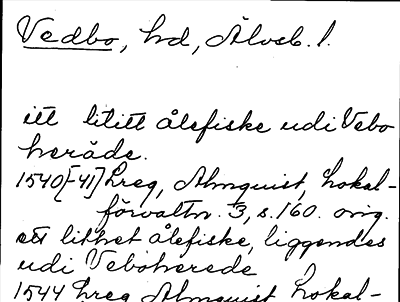 Vedbo, hd, Älvsb. l.
ett lititt ålefiske udi Vebo
heråde.
1540[-41] hreg, Almquist, Lokal-
förvaltn. 3, s. 160. orig.
ett lithet ålefiske, liggendes
udi Veboherede
1544 hreg Almquist Lokal-